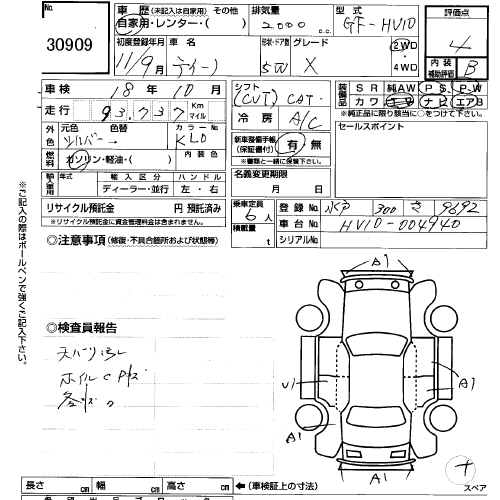 No. 30909
車歴 (未記入は自家用) その他
自家用・レンタカー・( )
排気量 2000 c.c.
型式 GF-HV10
2WD・4WD
評価点 4
内装補助評価 B
初度登録年月 11/9月
車名
形状・ドア数 5W
グレード X
車検 18年10月
走行 93.737 Km マイル
シフト (CVT) CAT・
冷房 A/C
装備品 SR 純AW PS PW
カワ エアB ナビ エアB
※純正品に限り該当に○をつけて下さい
外色 元色 シルバー 色替
カラーNo KL0
燃料 ガソリン・軽油・( )
内装色
新車整備手帳(保証書付) 有・無
※書類と一緒に保管下さい
セールスポイント
輸入車用 年式 輸入区分 ハンドル
ディーラー・並行 左・右
名義変更期限
月 日
リサイクル預託金 円 預託済み
※リサイクル預託金に資金管理料金は含まれますん
乗車定員 6人
積載量 t
登録No. 300 さ 9692
車台No. HV10-004940
シリアルNo.
☆注意事項 (修復・不具合箇所および状態等)
※ご記入の際はボールペンで強くご記入下さい。
☆検査員報告
A1
A1
U1
A1
A1
A1
スペア
長さ cm 幅 cm 高さ cm ←(車検証上の寸法)